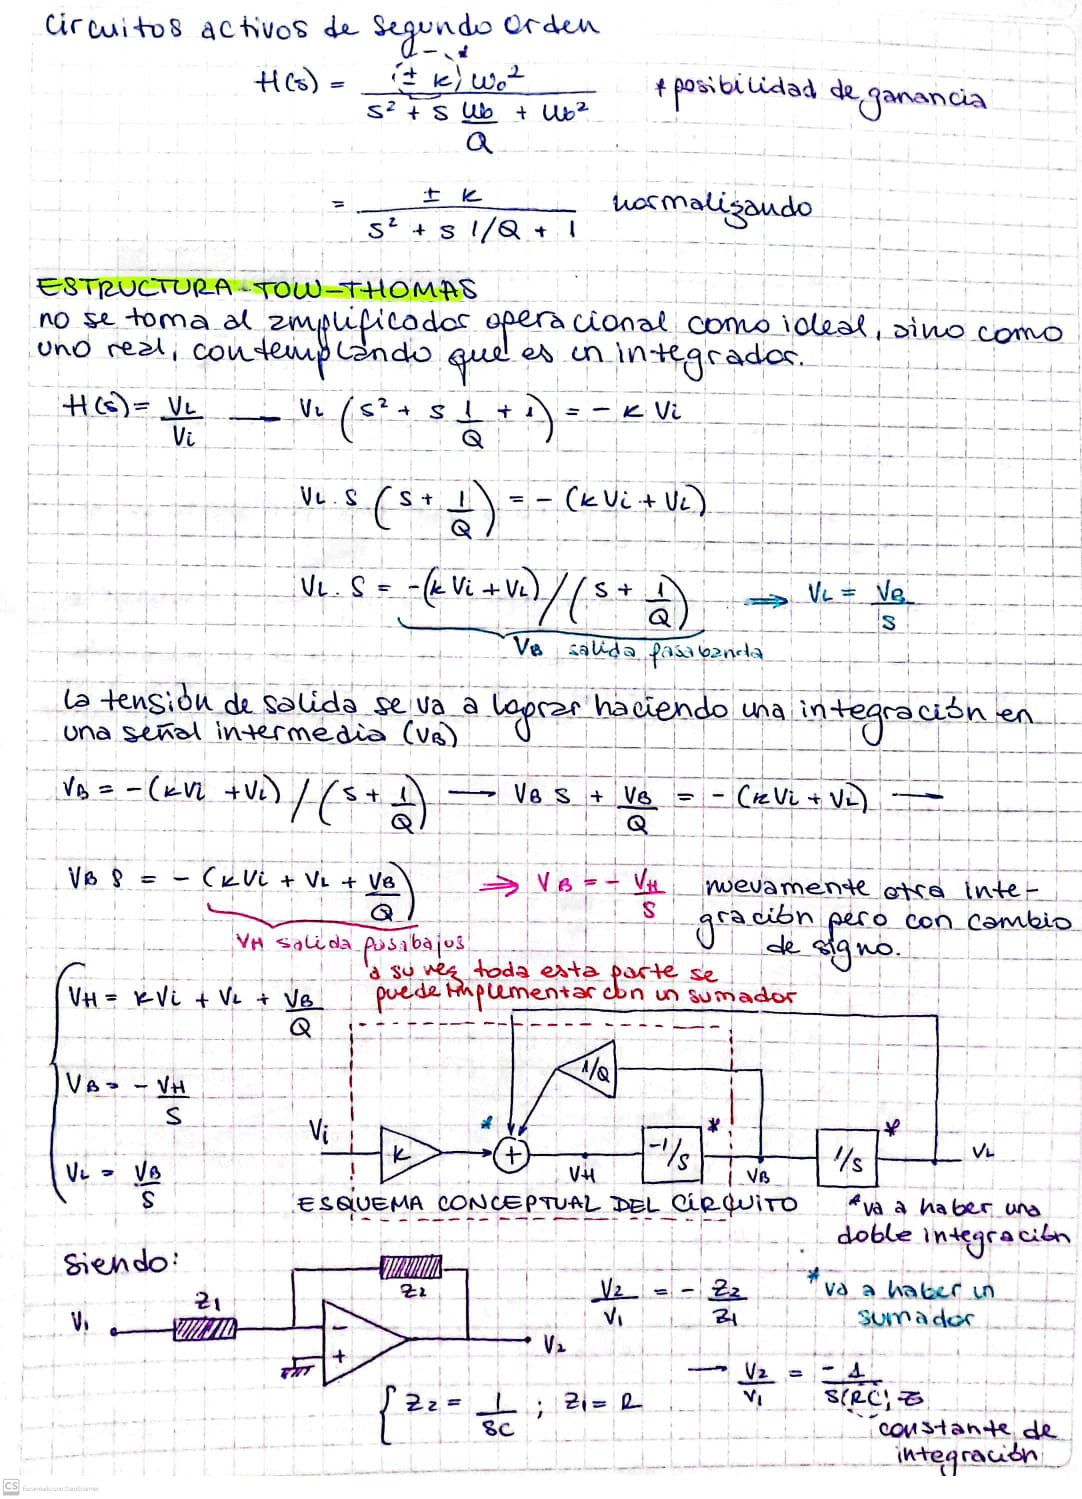 Circuitos activos de segundo orden
H(s) = (± k) ω₀² / (s² + s ω₀/Q + ω₀²)
* posibilidad de ganancia
= ± k / (s² + s 1/Q + 1) normalizando
ESTRUCTURA TOW-THOMAS
no se toma al amplificador operacional como ideal, sino como
uno real, contemplando que es un integrador.
H(s) = VL/Vi — VL (s² + s 1/Q + 1) = - k Vi
VL . s (s + 1/Q) = - (k Vi + VL)
VL . s = -(k Vi + VL) / (s + 1/Q) ⇒ VL = VB/s
VB salida pasabanda
la tensión de salida se va a lograr haciendo una integración en
una señal intermedia (VB)
VB = - (k Vi + VL) / (s + 1/Q) — VB s + VB/Q = - (k Vi + VL) —
VB s = - (k Vi + VL + VB/Q) ⇒ VB = - VH/s
nuevamente otra inte-
gración pero con cambio
de signo.
VH salida pasabajos
a su vez toda esta parte se
puede implementar con un sumador
VH = k Vi + VL + VB/Q
VB = - VH/s
VL = VB/s
1/Q
Vi
k
*
+
VH
-1/s
*
VB
1/s
*
VL
ESQUEMA CONCEPTUAL DEL CIRCUITO
* va a haber una
doble integración
* va a haber un
sumador
siendo:
V1
Z1
Z2
-
+
V2
V2/V1 = - Z2/Z1
{ Z2 = 1/sC ; Z1 = R
→ V2/V1 = -1/s(RC) τ
constante de
integración
CS Escaneado con CamScanner